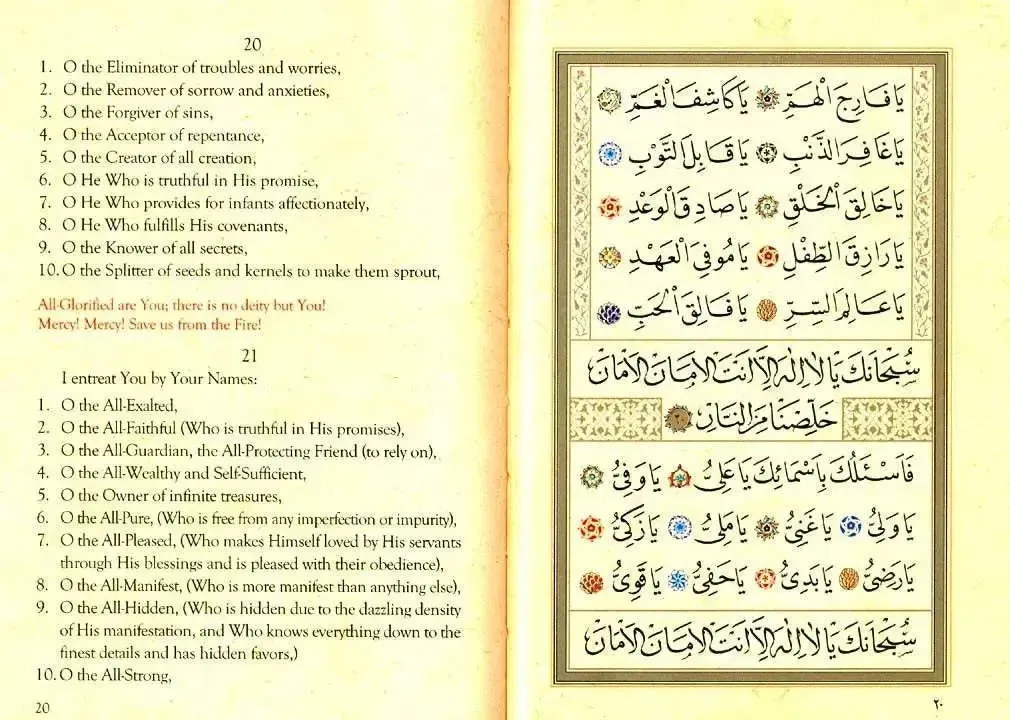 20
1. O the Eliminator of troubles and worries,
2. O the Remover of sorrow and anxieties,
3. O the Forgiver of sins,
4. O the Acceptor of repentance,
5. O the Creator of all creation,
6. O He Who is truthful in His promise,
7. O He Who provides for infants affectionately,
8. O He Who fulfills His covenants,
9. O the Knower of all secrets,
10. O the Splitter of seeds and kernels to make them sprout,
All-Glorified are You; there is no deity but You!
Mercy! Mercy! Save us from the Fire!
21
I entreat You by Your Names:
1. O the All-Exalted,
2. O the All-Faithful (Who is truthful in His promises),
3. O the All-Guardian, the All-Protecting Friend (to rely on),
4. O the All-Wealthy and Self-Sufficient,
5. O the Owner of infinite treasures,
6. O the All-Pure, (Who is free from any imperfection or impurity),
7. O the All-Pleased, (Who makes Himself loved by His servants
through His blessings and is pleased with their obedience),
8. O the All-Manifest, (Who is more manifest than anything else),
9. O the All-Hidden, (Who is hidden due to the dazzling density
of His manifestation, and Who knows everything down to the
finest details and has hidden favors,)
10. O the All-Strong,
20
يَا فَارِجَ الْهَمِّ يَا كَاشِفَ الْغَمِّ
يَا غَافِرَ الذَّنْبِ يَا قَابِلَ التَّوْبِ
يَا خَالِقَ الْخَلْقِ يَا صَادِقَ الْوَعْدِ
يَا رَازِقَ الطِّفْلِ يَا مُوفِيَ الْعَهْدِ
يَا عَالِمَ السِّرِّ يَا فَالِقَ الْحَبِّ
سُبْحَانَكَ يَا لَا اِلٰهَ اِلَّا اَنْتَ الْاَمَانَ الْاَمَانَ
خَلِّصْنَا مِنَ النَّارِ ٢٠
فَاَسْئَلُكَ بِاَسْمَائِكَ يَا عَلِىُّ يَا وَفِىُّ
يَا وَلِىُّ يَا غَنِىُّ يَا مَلِىُّ يَا زَكِىُّ
يَا رَضِىُّ يَا بَدِىُّ يَا حَفِىُّ يَا قَوِىُّ
سُبْحَانَكَ يَا لَا اِلٰهَ اِلَّا اَنْتَ الْاَمَانَ الْاَمَانَ
٢٠